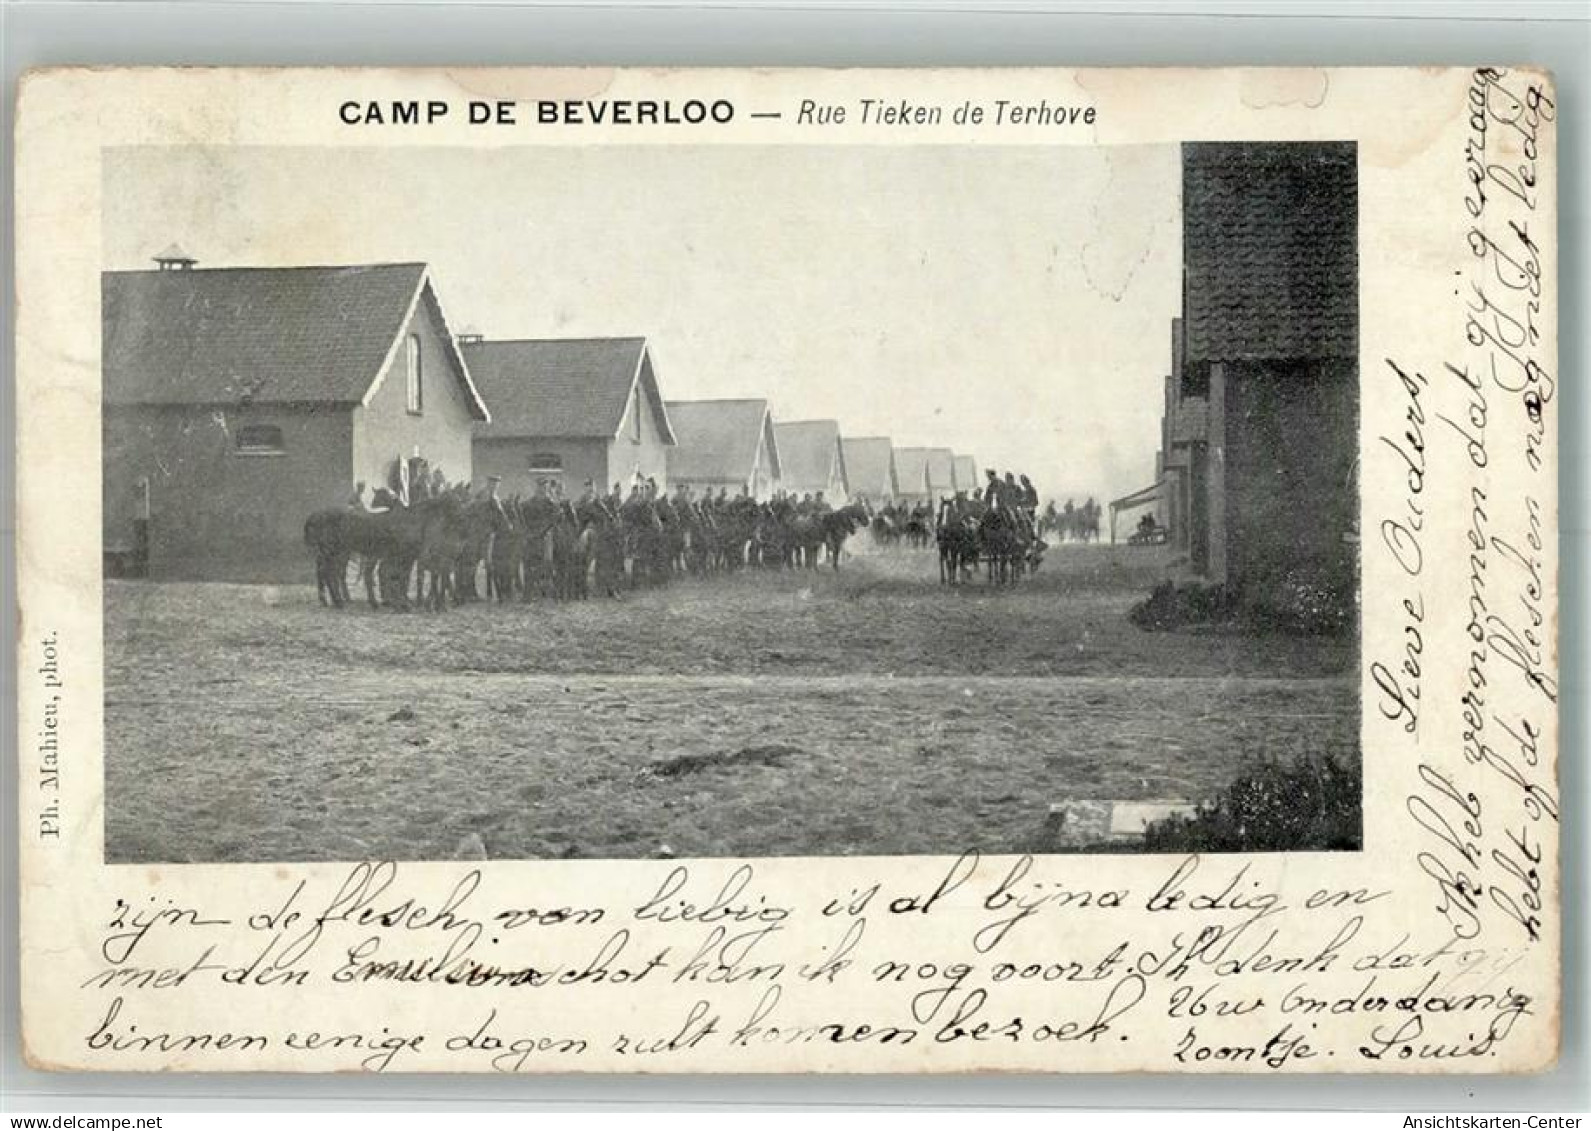 CAMP DE BEVERLOO — Rue Tieken de Terhove
Ph. Mahieu, phot.
Lieve Ouders,
Ik heb vernomen dat gij gevraagd
hebt of de flesschen nog niet ledig
zijn de flesch van liebig is al bijna ledig en
met den Emulsion schot kan ik nog voort. Ik denk dat gij
binnen eenige dagen zult komen bezoek.
Uw Onderdanig
Zoontje. Louis.
delcampe.net
Ansichtskarten-Center